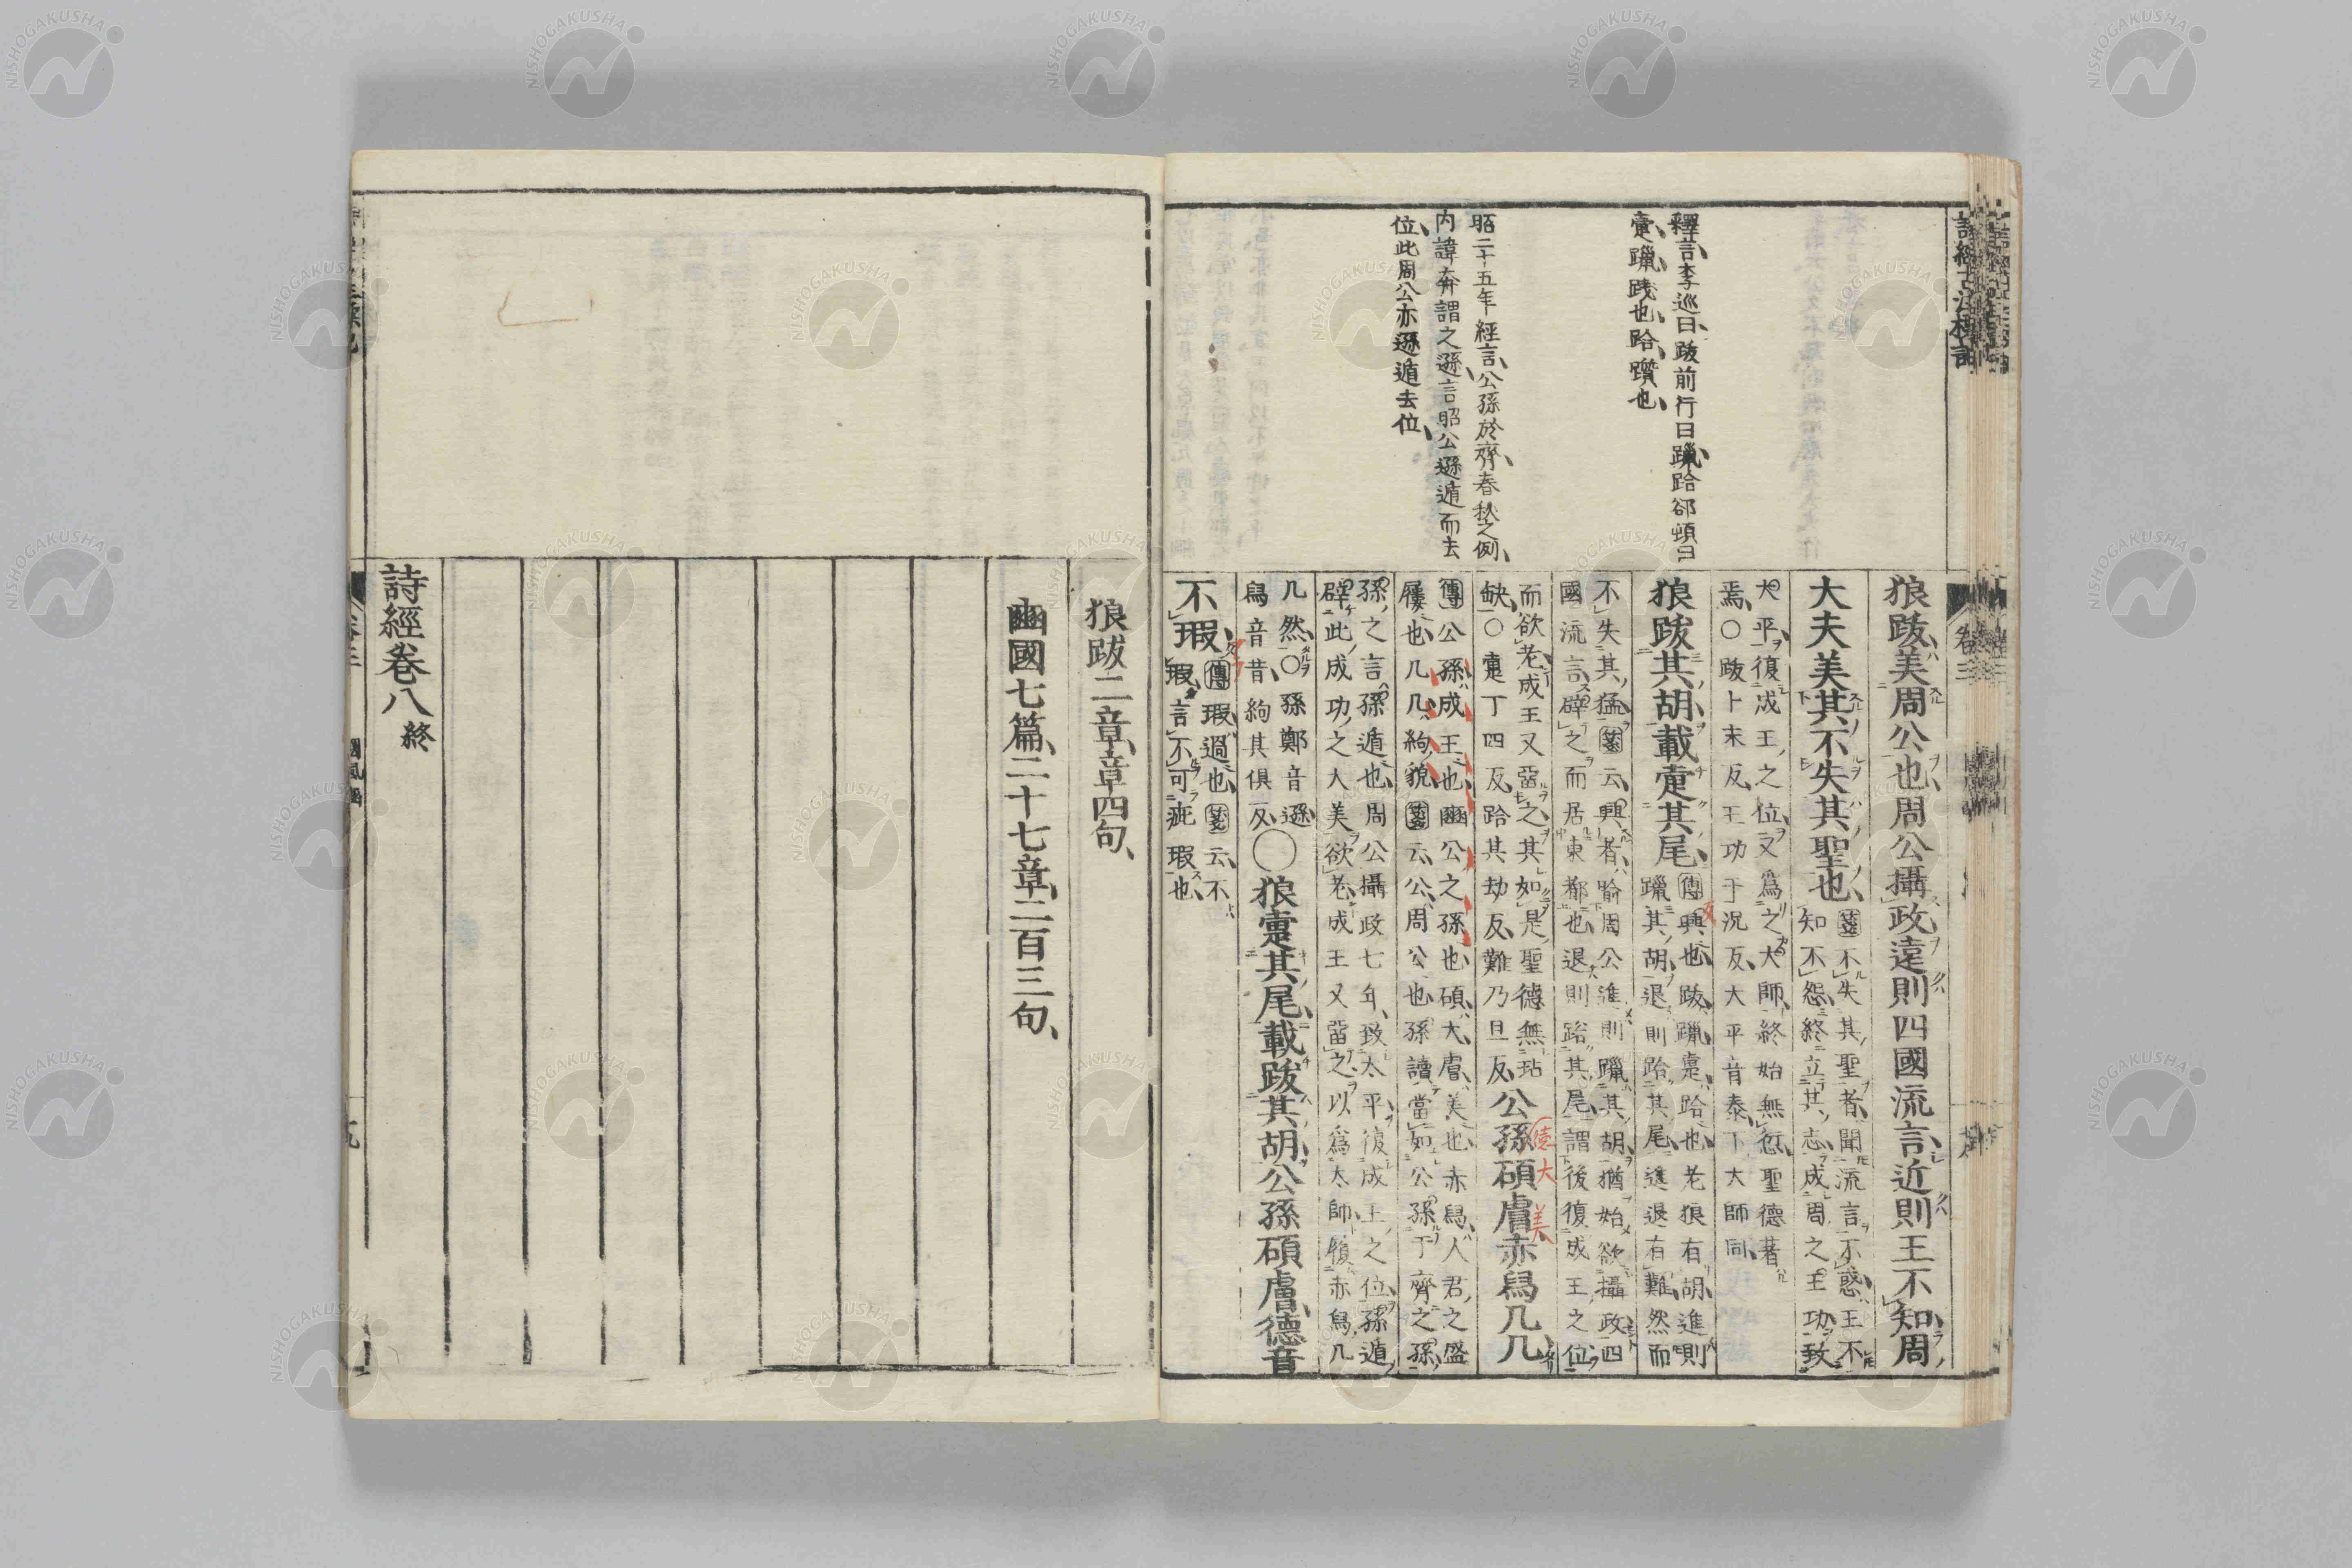 釋言李巡曰跋前行曰躐跲郤頓曰
疐躐踐也跲躓也
昭二十五年經言公孫於齊春秋之例
内諱奔謂之遜言昭公遜遁而去
位此周公亦遜遁去位
狼跋美周公也周公攝政遠則四國流言近則王不知周
大夫美其不失其聖也
箋不失其聖者聞流言不惑王不
知不怨終立其志成周之王功致
大平復成王之位又爲之大師終始無愆聖德著
焉○跋卜末反王功于況反大平音泰下大師同
狼跋其胡載疐其尾
傳興也跋躐疐跲也老狼有胡進則
躐其胡退則跲其尾進退有難然而
不失其猛箋云興者喻周公進則躐其胡猶始欲攝政四
國流言辟之而居東都也退則跲其尾謂後復成王之位
而欲老成王又畱之其如是聖德無玷
缺○疐丁四反跲其劫反難乃旦反
公孫碩膚赤舄几几
傳公孫成王也豳公之孫也碩大膚美也赤舄人君之盛
屨也几几絇貌箋云公周公也孫讀當如公孫于齊之孫
孫之言孫遁也周公攝政七年致太平復成王之位孫遁
辟此成功之大美欲老成王又畱之以爲大師履赤舄几
几然○孫鄭音遜
舄音昔絇其俱反
○狼疐其尾載跋其胡公孫碩膚德音
不瑕
傳瑕過也箋云不
瑕言不可疵瑕也
狼跋二章章四句
豳國七篇二十七章二百三句
詩經卷八終
遜大
美
NISHOGAKUSHA